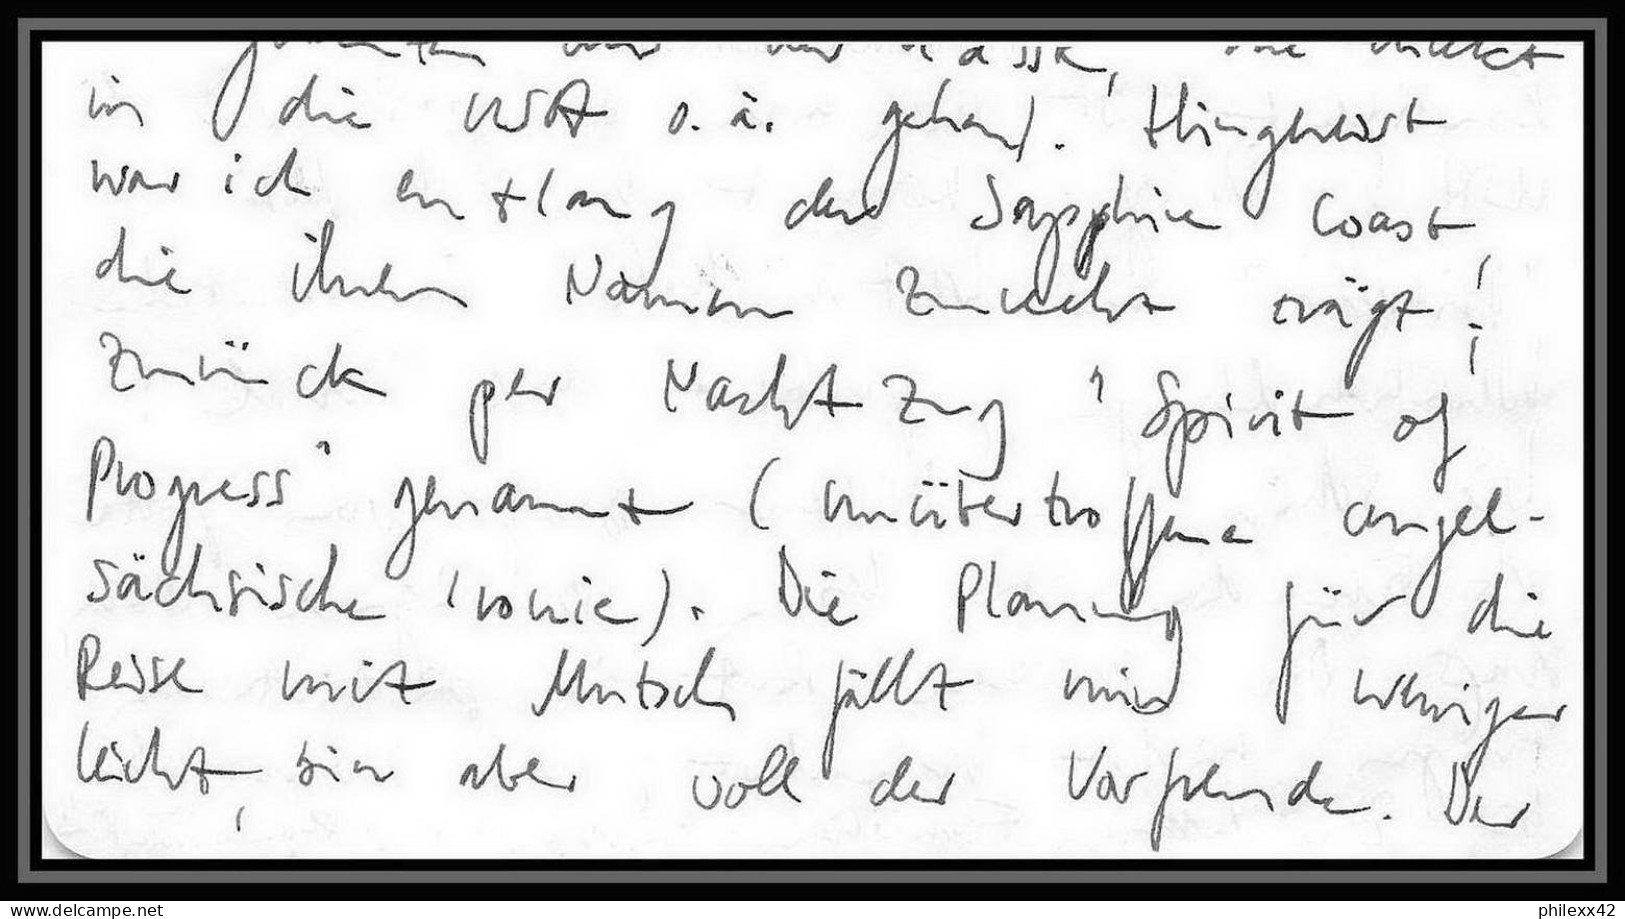 in die USA o.ä. gehen). Hingereist
war ich entlang der Sapphire Coast
die ihren Namen zurecht trägt!
Zurück per Nachtzug "Spirit of
Progress" genannt (unübertroffene angel-
sächsische Ironie). Die Planung für die
Reise mit Mutsch fällt mir weniger
leicht, bin aber voll der Vorfreude. Der
www.delcampe.net
philexx42